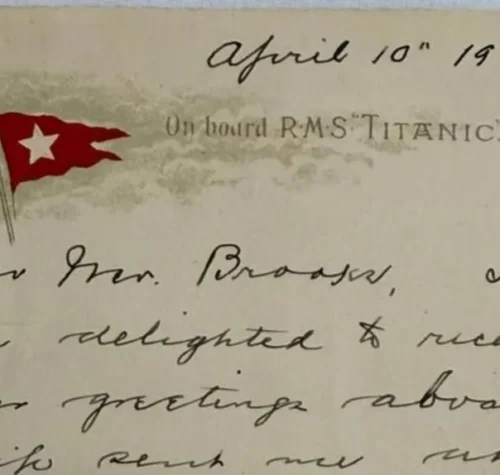 April 10" 19
On board R·M·S "TITANIC"
Mr. Brooks,
delighted to rece
greetings aboa
sent me